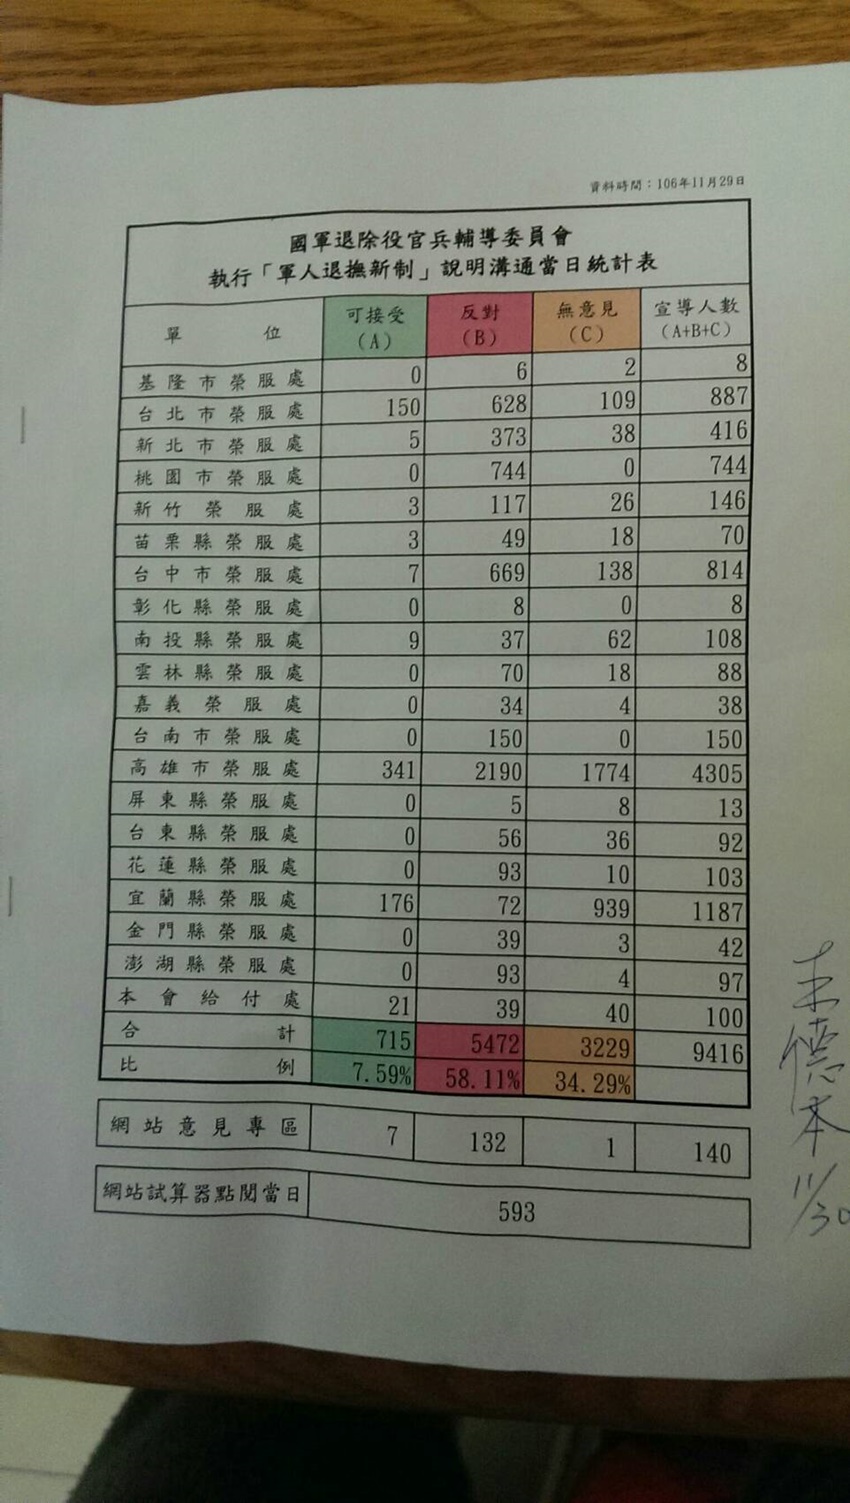 資料時間：106年11月29日
國軍退除役官兵輔導委員會
執行「軍人退撫新制」說明溝通當日統計表
單位 可接受(A) 反對(B) 無意見(C) 宣導人數(A+B+C)
基隆市榮服處 0 6 2 8
台北市榮服處 150 628 109 887
新北市榮服處 5 373 38 416
桃園市榮服處 0 744 0 744
新竹榮服處 3 117 26 146
苗栗縣榮服處 3 49 18 70
台中市榮服處 7 669 138 814
彰化縣榮服處 0 8 0 8
南投縣榮服處 9 37 62 108
雲林縣榮服處 0 70 18 88
嘉義榮服處 0 34 4 38
台南市榮服處 0 150 0 150
高雄市榮服處 341 2190 1774 4305
屏東縣榮服處 0 5 8 13
台東縣榮服處 0 56 36 92
花蓮縣榮服處 0 93 10 103
宜蘭縣榮服處 176 72 939 1187
金門縣榮服處 0 39 3 42
澎湖縣榮服處 0 93 4 97
本會給付處 21 39 40 100
合計 715 5472 3229 9416
比例 7.59% 58.11% 34.29%
網站意見專區 7 132 1 140
網站試算器點閱當日 593
德本
11/30